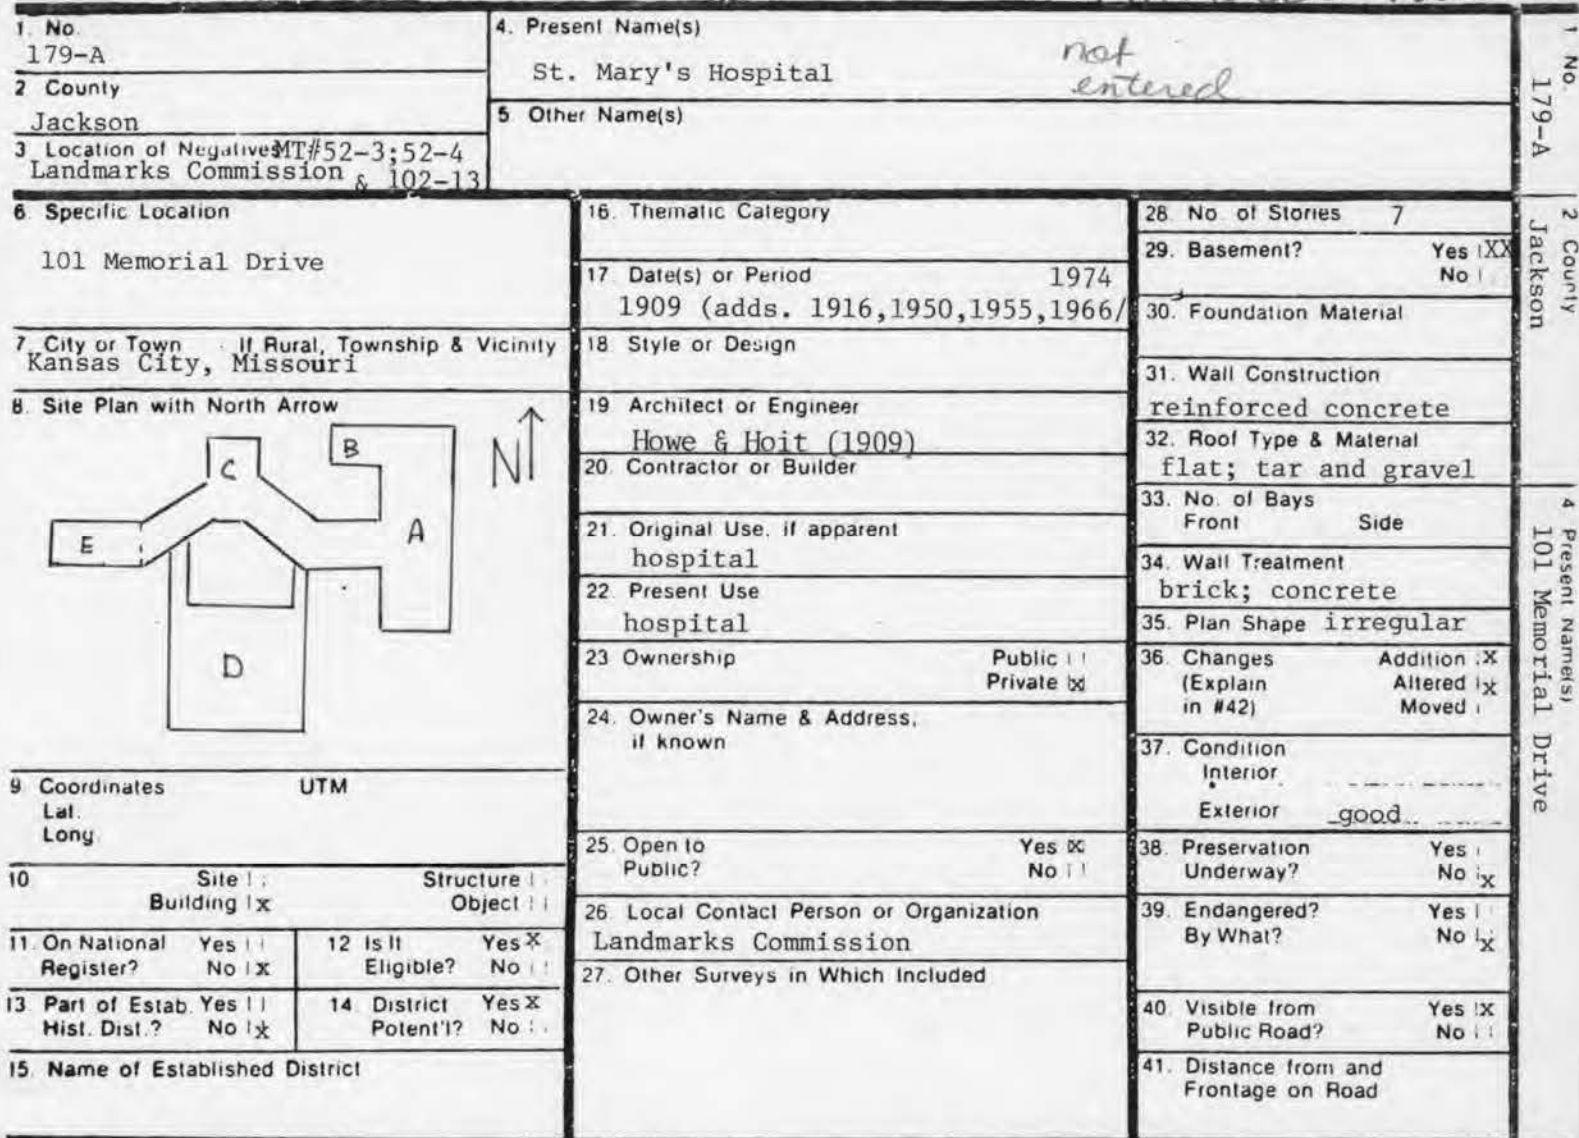 1. No.
179-A
2 County
Jackson
3 Location of Negatives MT#52-3;52-4
Landmarks Commission & 102-13
4. Present Name(s)
St. Mary's Hospital
not
entered
5 Other Name(s)
6. Specific Location
101 Memorial Drive
7. City or Town If Rural, Township & Vicinity
Kansas City, Missouri
8. Site Plan with North Arrow
N
B
C
A
E
D
9 Coordinates UTM
Lat.
Long.
10 Site Structure
Building x Object
11. On National Yes
Register? No x
12 Is It Yes X
Eligible? No
13. Part of Estab. Yes
Hist. Dist.? No x
14. District Yes X
Potent'l? No
15. Name of Established District
16. Thematic Category
17. Date(s) or Period 1974
1909 (adds. 1916,1950,1955,1966/
18. Style or Design
19 Architect or Engineer
Howe & Hoit (1909)
20. Contractor or Builder
21. Original Use, if apparent
hospital
22. Present Use
hospital
23 Ownership Public
Private x
24. Owner's Name & Address,
if known
25. Open to Yes x
Public? No
26. Local Contact Person or Organization
Landmarks Commission
27. Other Surveys in Which Included
28. No. of Stories 7
29. Basement? Yes XX
No
30. Foundation Material
31. Wall Construction
reinforced concrete
32. Roof Type & Material
flat; tar and gravel
33. No. of Bays
Front Side
34. Wall Treatment
brick; concrete
35. Plan Shape irregular
36. Changes Addition X
(Explain Altered x
in #42) Moved
37. Condition
Interior
Exterior good
38. Preservation Yes
Underway? No x
39. Endangered? Yes
By What? No x
40. Visible from Yes X
Public Road? No
41. Distance from and
Frontage on Road
1 No.
179-A
2 County
Jackson
4 Present Name(s)
101 Memorial Drive